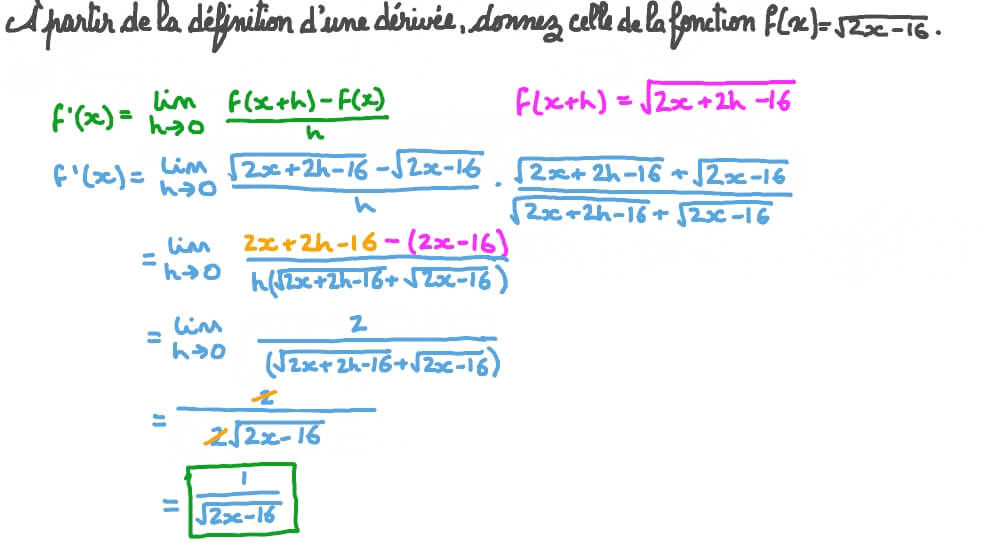 À partir de la définition d'une dérivée, donnez celle de la fonction f(x)=√(2x-16).
f'(x)= lim h→0 (f(x+h)-f(x))/h    f(x+h) = √(2x+2h-16)
f'(x)= lim h→0 (√(2x+2h-16) - √(2x-16))/h · (√(2x+2h-16) + √(2x-16))/(√(2x+2h-16) + √(2x-16))
= lim h→0 (2x+2h-16-(2x-16))/(h(√(2x+2h-16)+√(2x-16)))
= lim h→0 2/((√(2x+2h-16)+√(2x-16)))
= 2/(2√(2x-16))
= 1/√(2x-16)